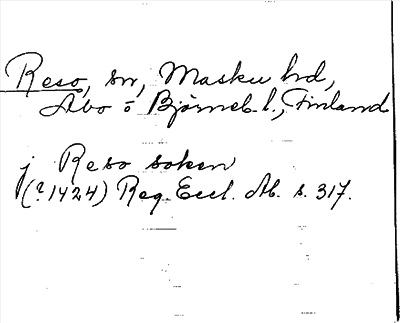 Reso, sn, Masku hd,
Åbo o Björneb. l., Finland
j Reso soken
(? 1424) Reg. Eccl. Ab. s. 317.